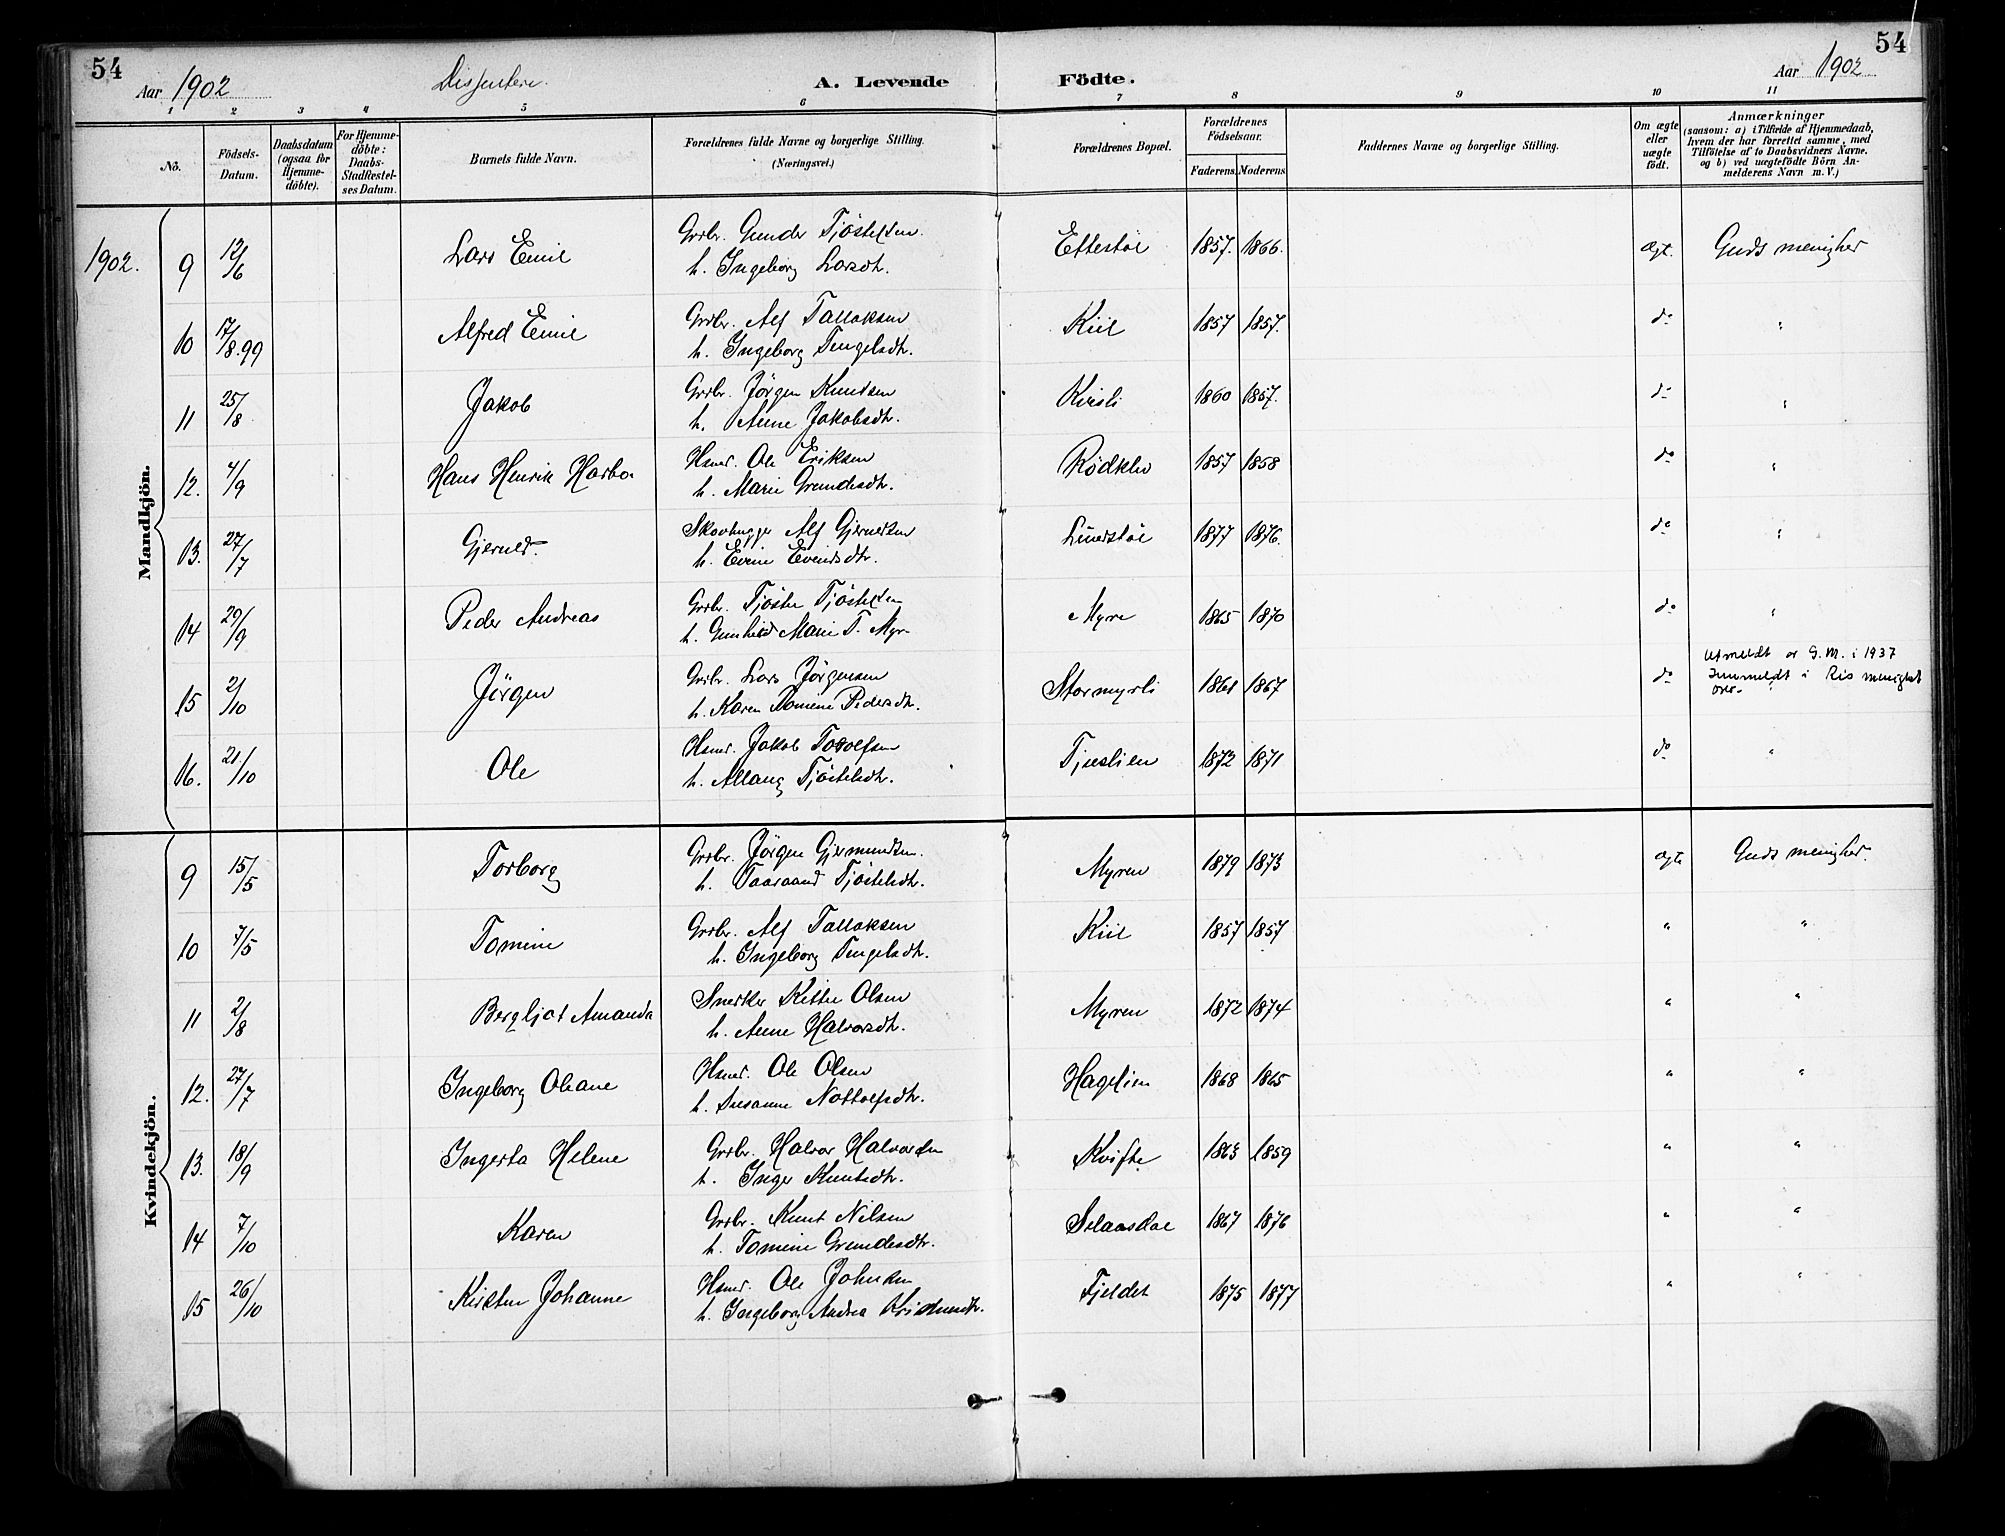 54
54
Aar 1902
Dissentere
A. Levende
Födte.
Aar 1902
1 2 3 4 5 6 7 8 9 10 11
No.
Födsels-Datum.
Daabsdatum (ogsaa for Hjemme-döbte).
For Hjemme-döbte: Daabs-Stadfæstel-ses Datum.
Barnets fulde Navn.
Forældrenes fulde Navne og borgerlige Stilling. (Næringsvei.)
Forældrenes Bopæl.
Forældrenes Födselsaar.
Faderens. Moderens.
Faddernes Navne og borgerlige Stilling.
Om ægte eller uægte födt.
Anmærkninger (saasom: a) i Tilfælde af Hjemmedaab, hvem der har forrettet samme, med Tilföielse af to Daabsvidners Navne. og b) ved uægtefödte Börn An-melderens Navn m. V.)
Mandkjön.
1902. 9 12/6 Lars Emil Grbr. Gunder Tjöstelsen 1857. 1866. ægt. Guds menighed
h. Ingeborg Larsdtr.
10 17/8.99 Alfred Emil Grbr. Alf Tallaksen Kiil 1857 1857. do "
h. Ingeborg Tengelsdtr.
11 25/8 Jakob Grbr. Jörgen Knudsen Kvisli 1860 1857. do "
h. Anne Jakobsdtr.
12. 4/9 Hans Henrik Harbo Hsmd. Ole Eriksen 1857 1858 do "
h. Marie Grundesdtr.
13. 27/7 Skovhugger Alf 1877 1876. do "
h. Evine Evensdtr.
14 29/9 Peder Andreas Grbr. Tjöstel Tjöstelsen Myre 1865 1870 do "
h. Gunhild Marie T. Myr
15 2/10 Jörgen Grbr. Lars Jörgensen Stormyrli 1861 1867 do
h. Karen Tomine Pedersdtr.
Utmeldt av G.M. i 1937
Innmeldt i Ris menighet
16. 21/10 Ole Hsmd. Jakob Torolfsen 1872 1871 do "
h. Allaug Tjöstelsdtr.
Kvindekjön.
9 15/5 Torborg Grbr. Jörgen Gjermundsen. Myren 1879 1873 ægte Guds menighed.
h. Taaraand Tjöstelsdtr.
10 7/5 Tomine Grbr. Alf Tallaksen Kiil 1857 1857 " "
h. Ingeborg Tengelsdtr.
11 2/8 Bergljot Amanda Snedker Kittil Olsen Myren 1872 1874 " "
h. Anne Halvorsdtr.
12. 27/7 Ingeborg Oleane Hsmd. Ole Olsen Hagelien 1868 1865 " "
h. Susanne Nottolfsdtr.
13. 18/9 Ingerta Helene Grbr. Halvor Halvorsen Kvifte 1863 1859 " "
h. Inger Knutsdtr.
14 7/10 Karen Grbr. Knut Nilsen Selaasdal 1867 1876 " "
h. Tomine Grundesdtr.
15 26/10 Kirsten Johanne Hsmd. Ole Johnsen Fjeldet 1875 1877 " "
h. Ingeborg Andrea